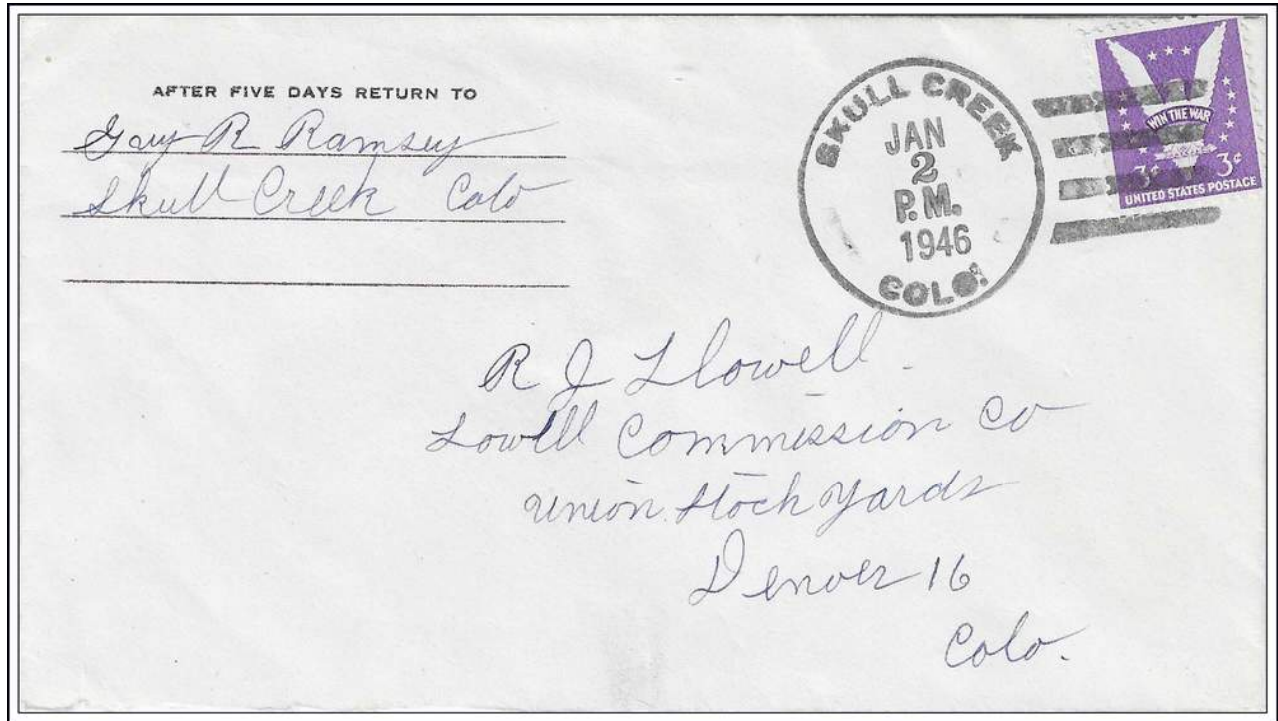 AFTER FIVE DAYS RETURN TO
Guy R Ramsey
Skull Creek Colo
SKULL CREEK
JAN
2
P.M.
1946
COLO.
WIN THE WAR
3¢ 3¢
UNITED STATES POSTAGE
R J Llowell
Lowell Commission Co
Union Stock Yards
Denver 16
Colo.